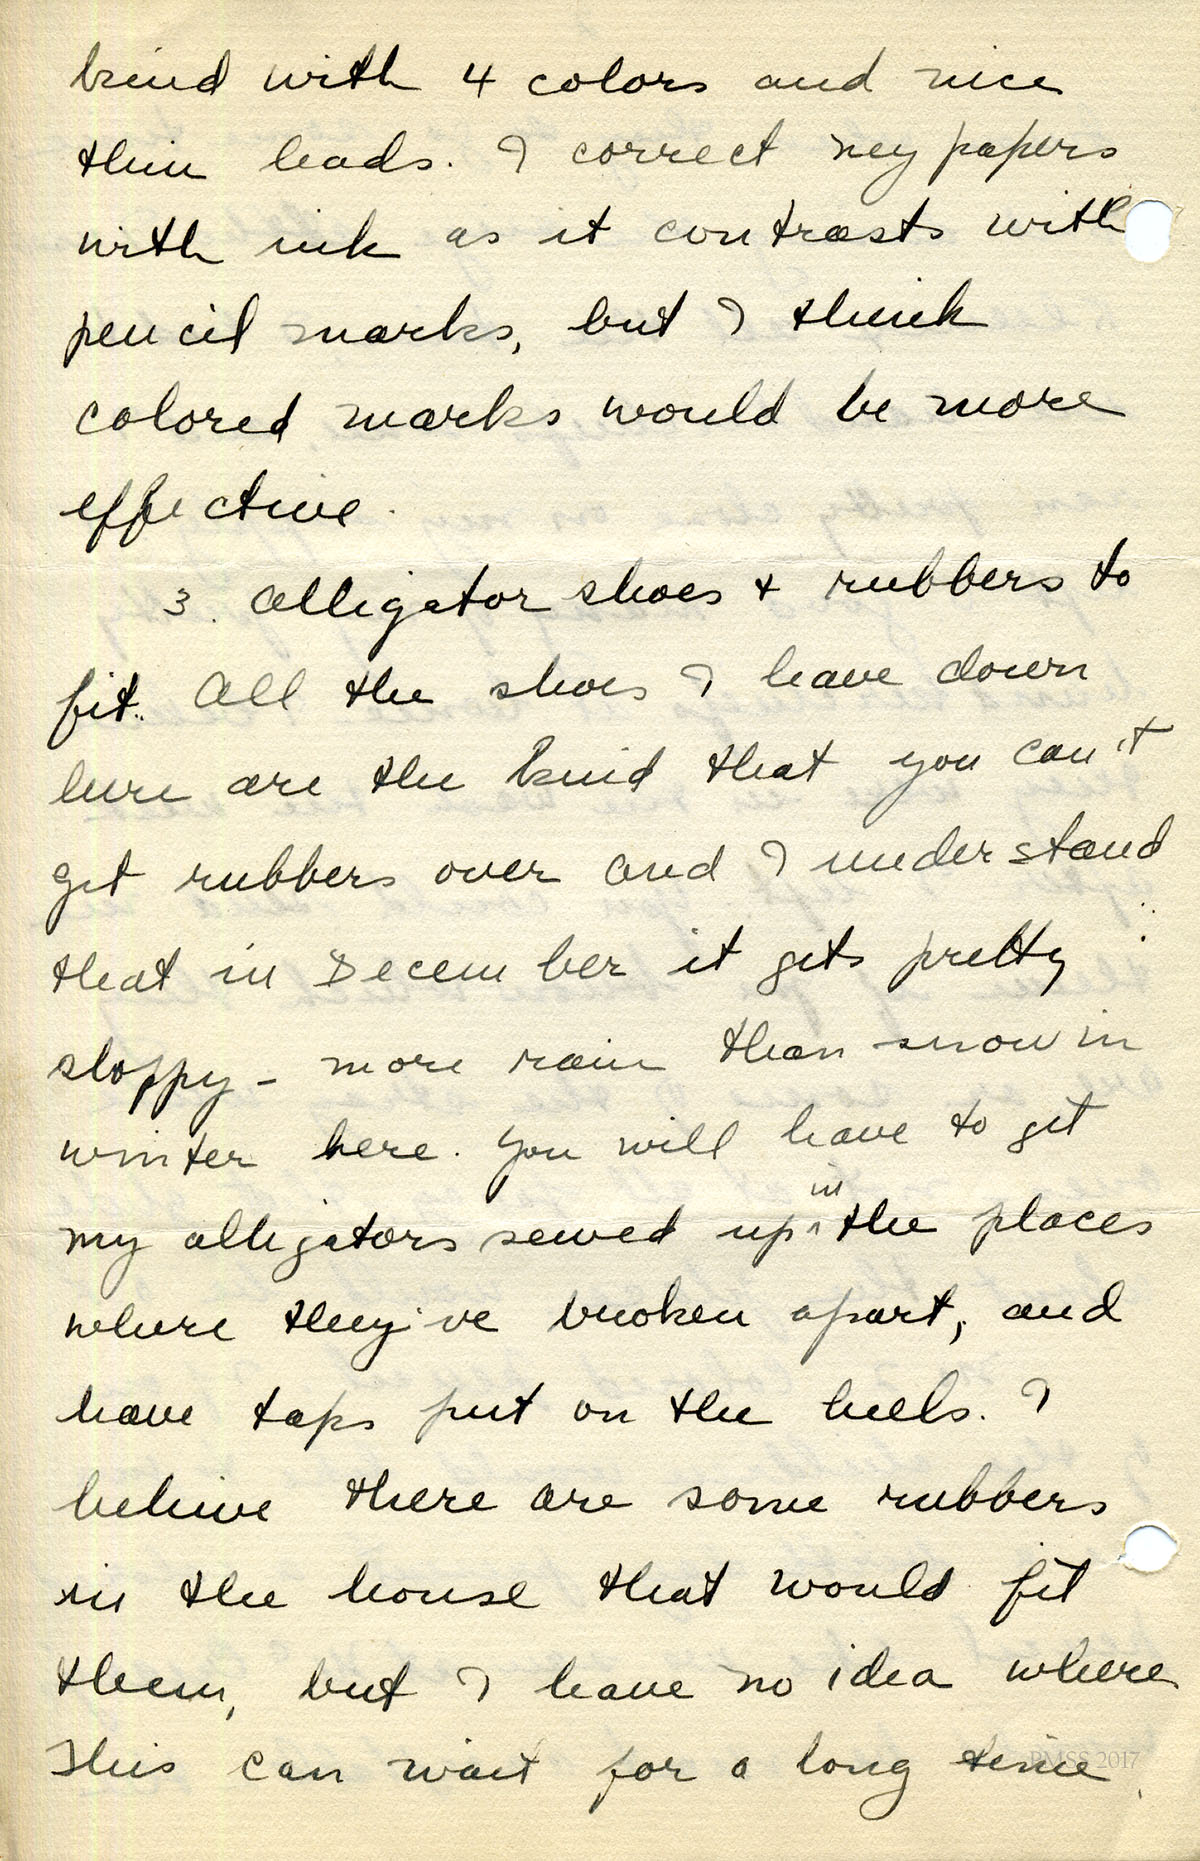 kind with 4 colors and nice
thin leads. I correct my papers
with ink as it contrasts with
pencil marks, but I think
colored marks would be more
effective.
3. Alligator shoes & rubbers to
fit. All the shoes I have down
here are the kind that you can't
get rubbers over and I understand
that in December it gets pretty
sloppy - more rain than snow in
winter here. You will have to get
my alligators sewed up in the places
where they've broken apart, and
have taps put on the heels. I
believe there are some rubbers
in the house that would fit
them, but I have no idea where
This can wait for a long time.
PMSS 2017